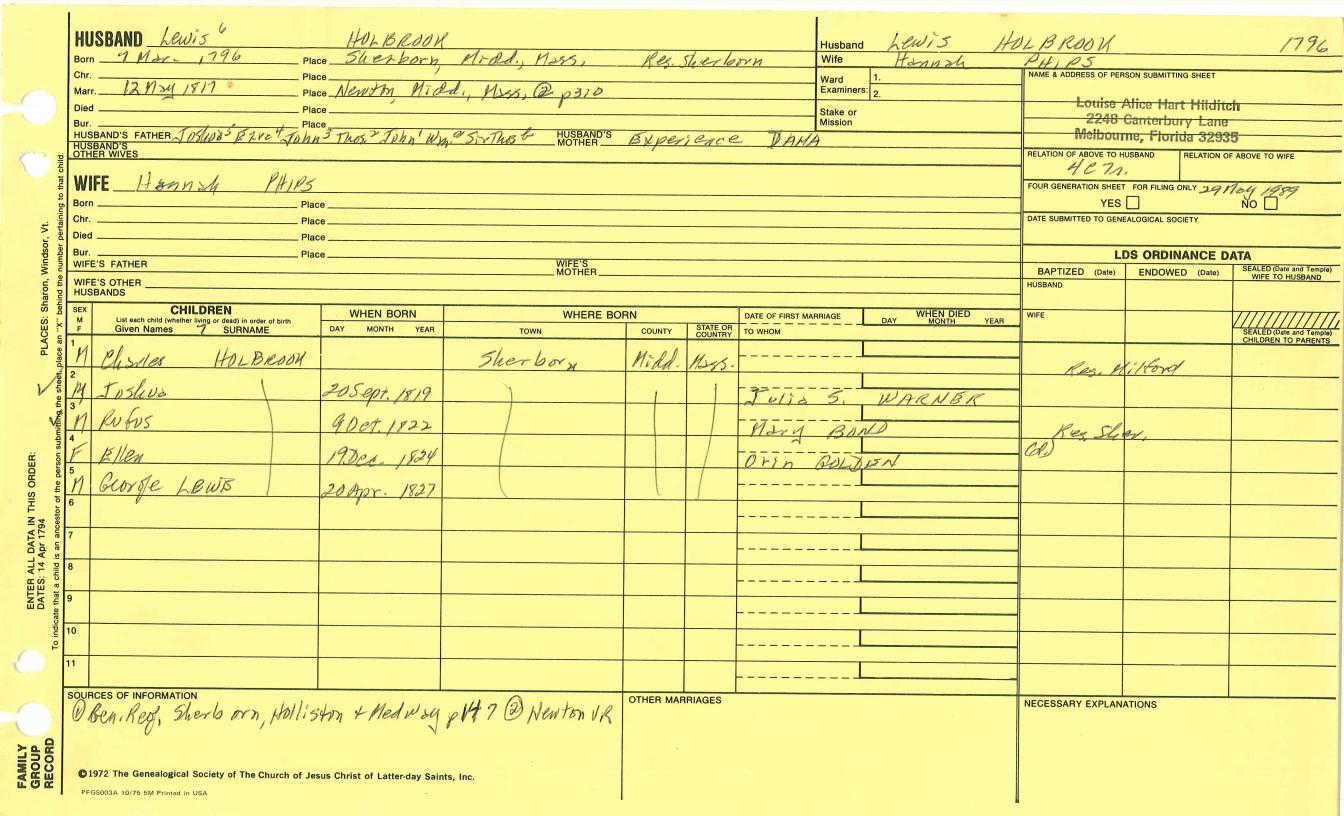 HUSBAND Lewis 6 HOLBROOK
Born 7 Mar. 1796 Place Sherborn, Midd., Mass. Res. Sherborn
Chr. Place
Marr. 12 May 1817 Place Newton, Midd., Mass, ② p310
Died Place
Bur. Place
HUSBAND'S FATHER Joshua5 Ezra4 John3 Thos2 John1 Wm a Sir Thos b HUSBAND'S MOTHER Experience DANA
HUSBAND'S OTHER WIVES
WIFE Hannah PHIPS
Born Place
Chr. Place
Died Place
Bur. Place
WIFE'S FATHER WIFE'S MOTHER
WIFE'S OTHER HUSBANDS
Husband Lewis HOLBROOK 1796
Wife Hannah PHIPS
Ward Examiners: 1.
2.
Stake or Mission
NAME & ADDRESS OF PERSON SUBMITTING SHEET
Louise Alice Hart Hilditch
2248 Canterbury Lane
Melbourne, Florida 32935
RELATION OF ABOVE TO HUSBAND RELATION OF ABOVE TO WIFE
FOUR GENERATION SHEET FOR FILING ONLY 29 May 1989
YES NO
DATE SUBMITTED TO GENEALOGICAL SOCIETY
LDS ORDINANCE DATA
BAPTIZED (Date) ENDOWED (Date) SEALED (Date and Temple) WIFE TO HUSBAND
HUSBAND
WIFE
SEALED (Date and Temple) CHILDREN TO PARENTS
SEX M F CHILDREN
List each child (whether living or dead) in order of birth
Given Names 7 SURNAME
WHEN BORN
DAY MONTH YEAR
WHERE BORN
TOWN COUNTY STATE OR COUNTRY
DATE OF FIRST MARRIAGE
TO WHOM
WHEN DIED
DAY MONTH YEAR
1 M Charles HOLBROOK Sherborn Midd. Mass. Res. Milford
2 M Joshua 20 Sept. 1819 Julia S. WARNER
3 M Rufus 9 Oct. 1822 Mary BAND Res. Sher.
4 F Ellen 19 Dec. 1824 Orin GOLDEN
5 M George LEWIS 20 Apr. 1827
6
7
8
9
10
11
SOURCES OF INFORMATION
① Gen. Reg, Sherborn, Holliston + Medway p147 ② Newton VR
OTHER MARRIAGES
NECESSARY EXPLANATIONS
©1972 The Genealogical Society of The Church of Jesus Christ of Latter-day Saints, Inc.
PFGS003A 10/75 5M Printed in USA
FAMILY GROUP RECORD
ENTER ALL DATA IN THIS ORDER:
DATES: 14 Apr 1794
PLACES: Sharon, Windsor, Vt.
To indicate that a child is an ancestor of the person submitting the sheet, place an "X" behind the number pertaining to that child.